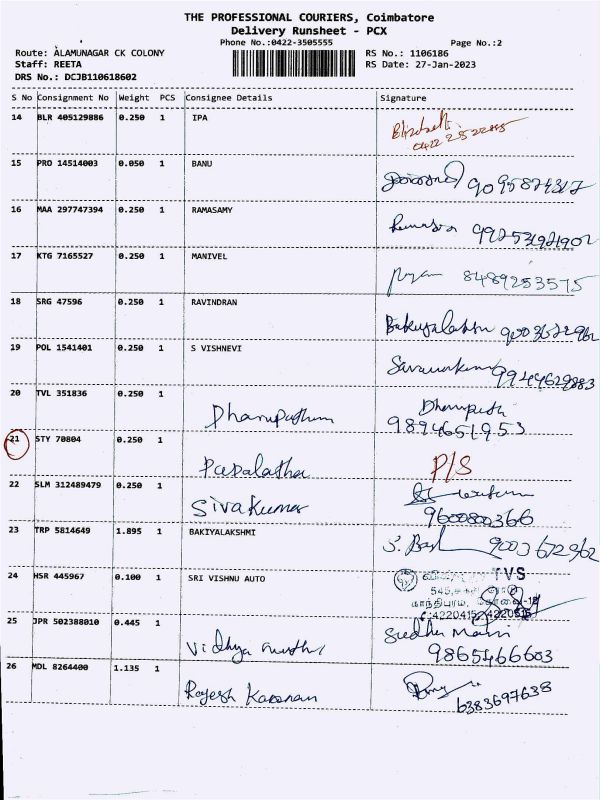 THE PROFESSIONAL COURIERS, Coimbatore
Delivery Runsheet - PCX
Phone No.:0422-3505555 Page No.:2
Route: ALAMUNAGAR CK COLONY RS No.: 1106186
Staff: REETA RS Date: 27-Jan-2023
DRS No.: DCJB110618602
S No Consignment No Weight PCS Consignee Details Signature
14 BLR 405129886 0.250 1 IPA
15 PRO 14514003 0.050 1 BANU 9095874317
16 MAA 297747394 0.250 1 RAMASAMY
17 KTG 7165527 0.250 1 MANIVEL 8489253575
18 SRG 47596 0.250 1 RAVINDRAN
19 POL 1541401 0.250 1 S VISHNEVI 9944629883
20 TVL 351836 0.250 1
9894651953
21 STY 70804 0.250 1 P/S
22 SLM 312489479 0.250 1 Sivakumar
9600800366
23 TRP 5814649 1.895 1 BAKIYALAKSHMI 9003672962
24 HSR 445967 0.100 1 SRI VISHNU AUTO TVS
25 JPR 502388010 0.445 1 Vidhya
9865466603
26 MDL 8264400 1.135 1 Rajesh Kannan
6383697638